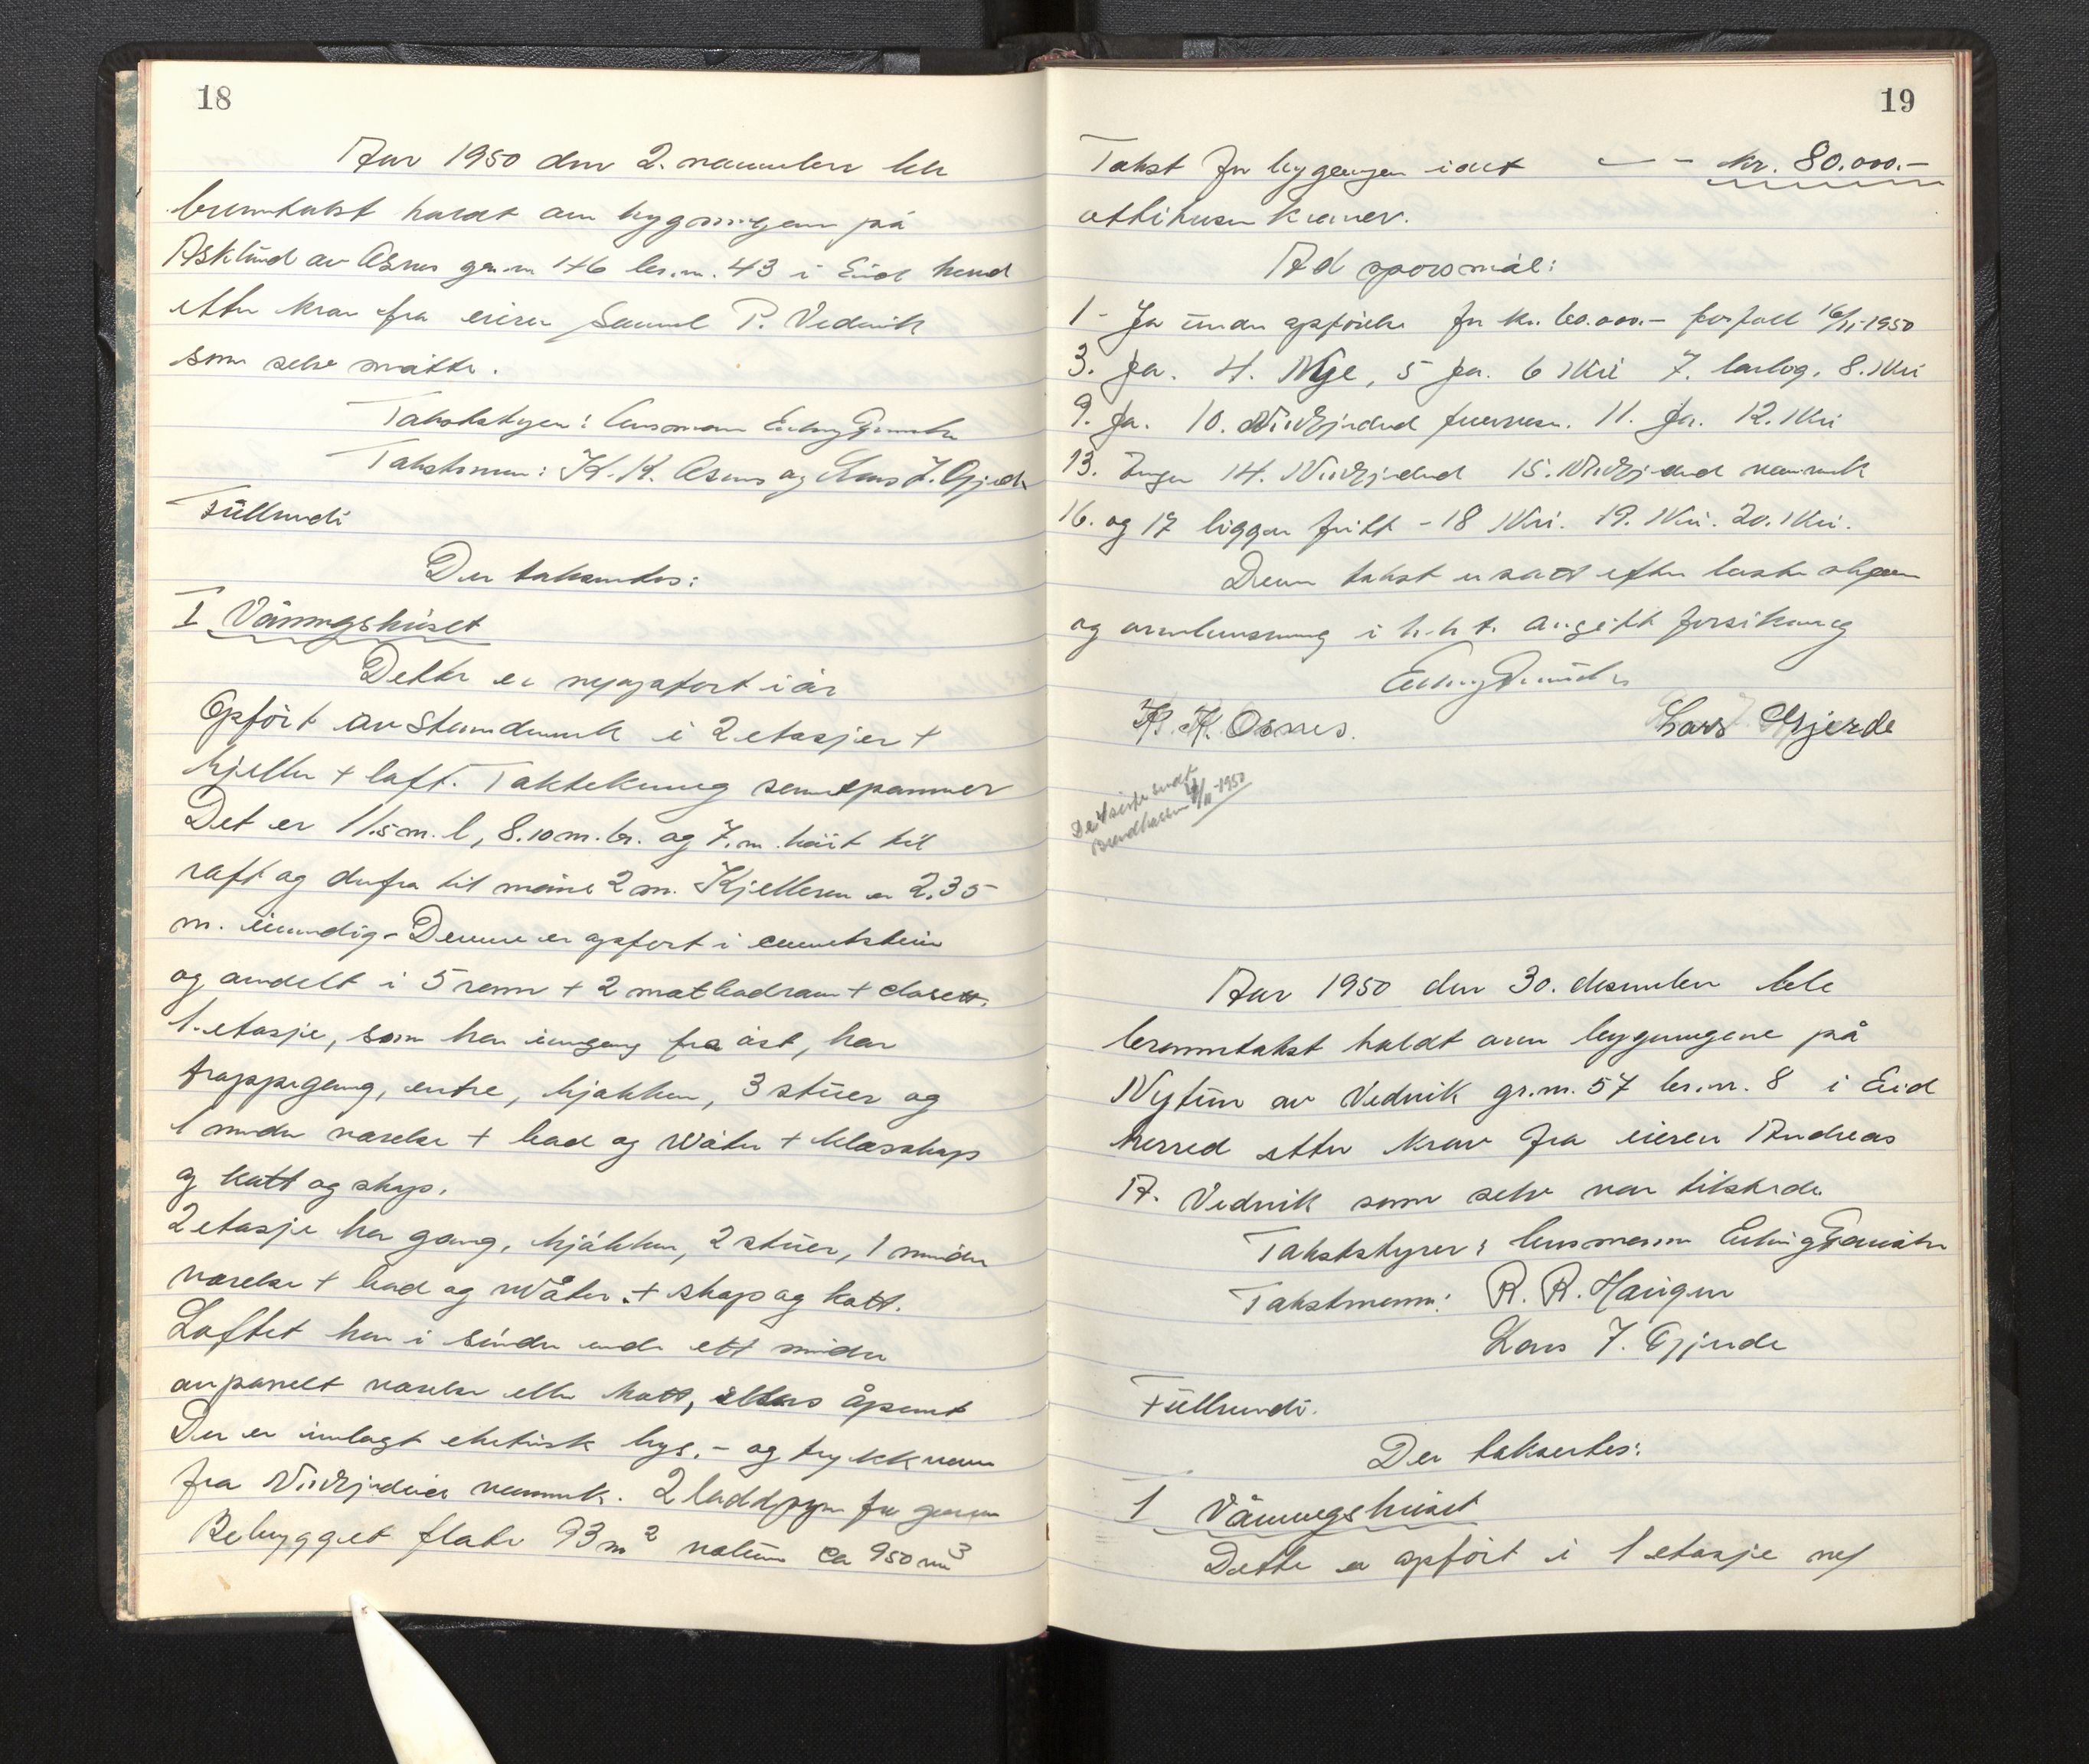 18
Aar 1950 den 2. november ble
branntakst haldt om bygningen på
Asklund av Osnes gr.nr 146 br.nr. 43 i Eid herad
etter krav fra eieren Samuel P. Vedvik
som selv møtte.
Takststyrer: lensmann Erling
Takstmenn: K. K. Osnes og Lars J. Gjerde
Fullendt
Der taksertes:
I Våningshuset
Dette er nyoppført i år
Opført av i 2 etasjer +
kjeller + loft. Taktekning sementpanner
Det er 11.5 m. l, 8.10 m. br. og 7. m. høit til
raft og derfra til møne 2 m. Kjelleren er 2.35
m. innvendig - Denne er opført i cementstein
og avdelt i 5 rom + 2 matbodrum + closett.
1. etasje, som har inngang fra øst, har
trappegang, entre, kjøkken, 3 stuer og
1 mindre værelse + bad og Wåter + klesskap
og kott og skap.
2 etasje har gang, kjøkken, 2 stuer, 1 mindre
værelse + bad og Wåter. + skap og kott.
Loftet har i søndre ende ett mindre
avpanelt værelse eller kott, ellers åpent
Der er innlagt elektrisk lys. - og trykkvann
fra vannverk. 2
Bebygget flate 93 m2 volum ca 950 m3
19
Takst for bygningen i alt - - kr. 80.000.-
ottitusen kroner.
Ad spørsmål:
1 - Ja under opførelse for kr. 60.000.- forfall 16/11-1950
3. Ja. 4. Nye, 5 Ja. 6 Nei 7. 8. Nei
9. Ja. 10. 11. Ja. 12. Nei
13. Ingen 14. 15. vannverk
16. og 17 ligger fritt - 18 Nei. 19. Nei. 20. Nei.
Denne takst er satt efter beste skjønn
og overbevisning i h.h.t. avgitt forsikring
Erling
K. K. Osnes. Lars J. Gjerde
sendt
11-1950
Aar 1950 den 30. desember ble
branntakst haldt over bygningene på
Nytun av Vedvik gr.nr. 57 br.nr. 8 i Eid
herred etter krav fra eieren Andreas
A. Vedvik som selv var tilstede.
Takststyrer: lensmann Erling
Takstmenn: R. R. Haugen
Lars J. Gjerde
Fullendt.
Der taksertes:
1 Våningshuset
Dette er opført i 1 etasje m/